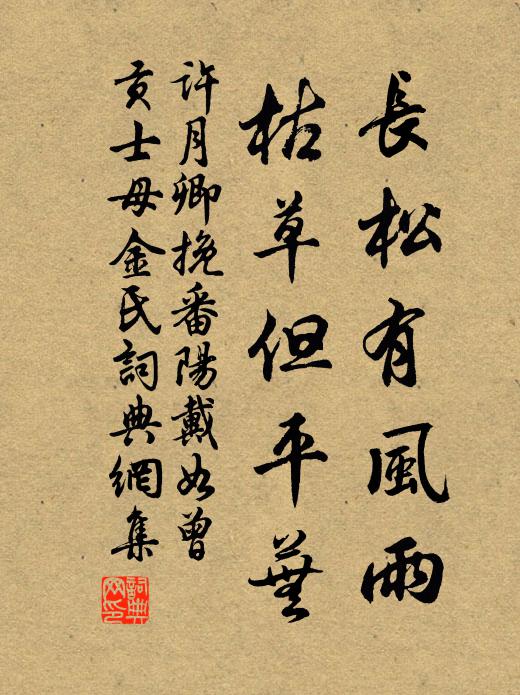 長松有風雨
枯草但平蕪
許月卿挽番陽戴如曾
貢士母金氏詞典網集
詞典网印